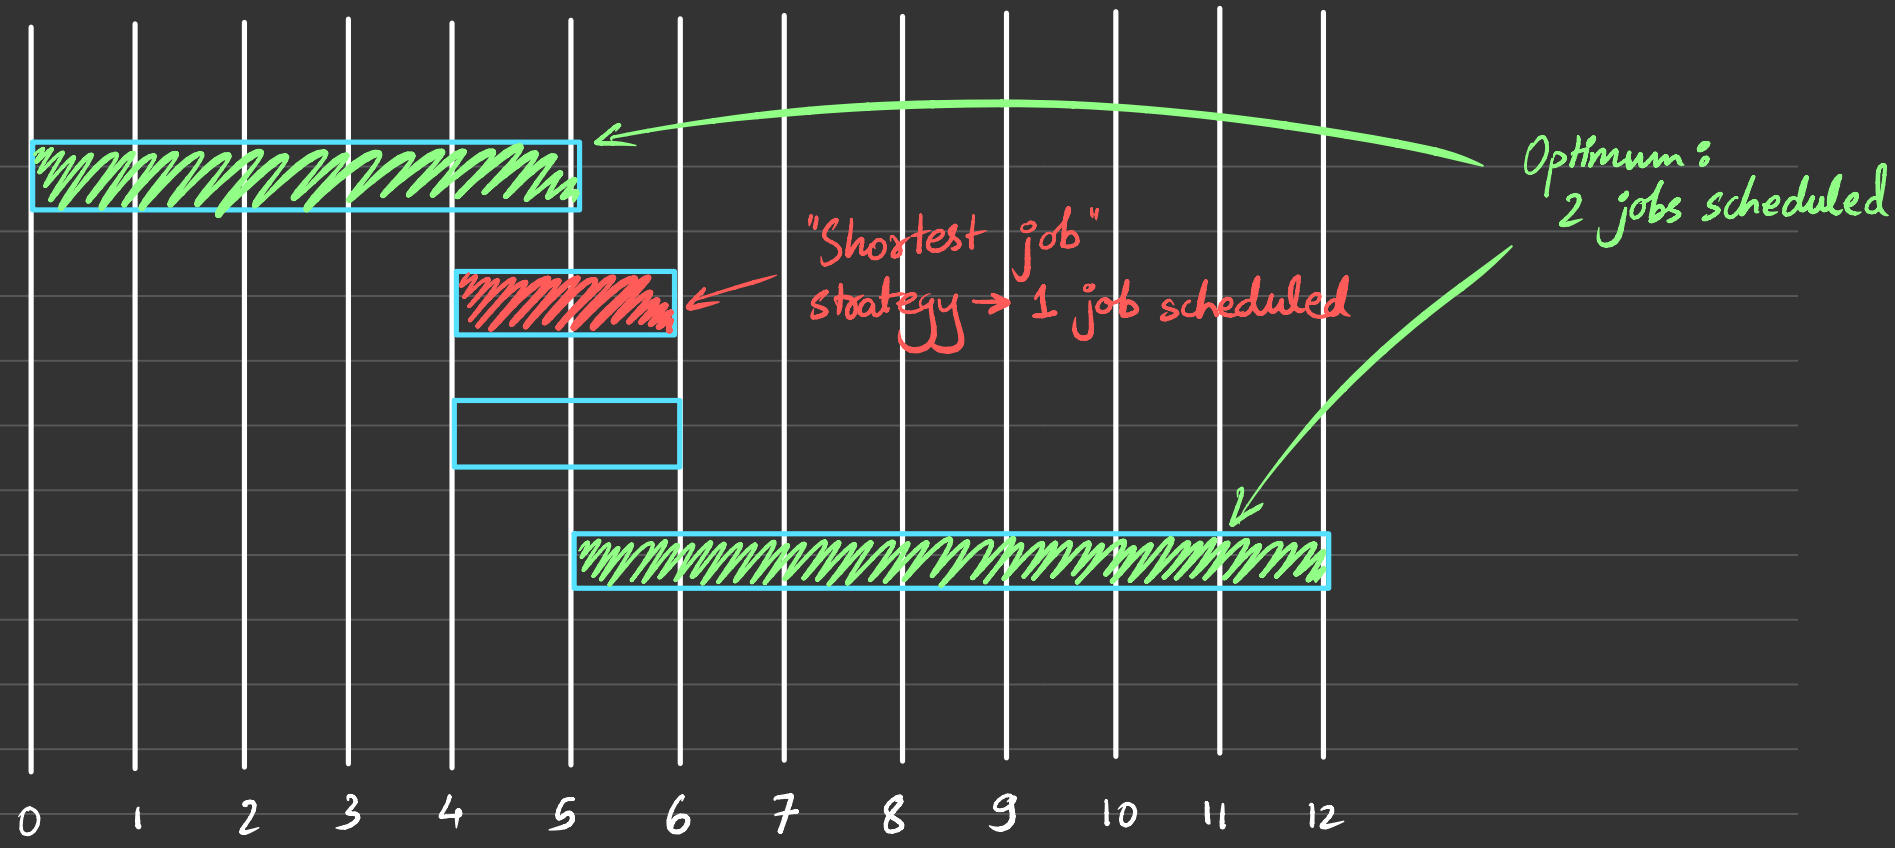 Optimum:
2 jobs scheduled
"Shortest job"
strategy → 1 job scheduled
0 1 2 3 4 5 6 7 8 9 10 11 12